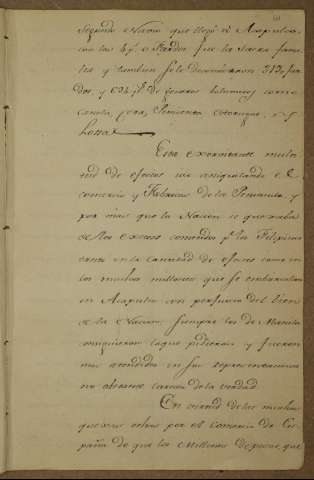 Segunda Nação que llegó à Acapulco
y tambien se le decomisaron 313 far
dos, y 624 p.s de generos
canela, cera, Pimienta
Esta exorbitante multi
tud de efectos iva aniquilando el
comercio y Fabricas de la Peninsula, y
por mas que la Nacion se quexaba
de los excesos cometidos p.r los Filipinos
tanto en la cantidad de efectos como en
los muchos millones que se embarcaban
en Acapulco con perjuicio del bien
de la Nacion, siempre los de Manila
consiguieron lo que pidieron y fueron
mas atendidos en sus representaciones
no obstante carecer de la verdad.
En virtud de las muchas
quexas echas por el comercio de Es-
paña de que los Millones de pesos, que